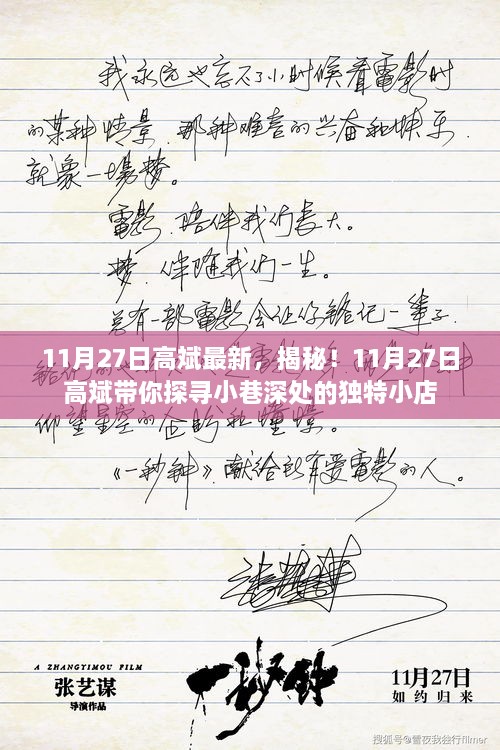 我永远也忘不了小时候看電影时
的某种情景.那种难言的兴奋和快乐.
就象一場梦。
電影.陪伴我们長大。
梦.伴随我们一生。
总有一部電影会让你銘记一辈子.
11月27日高斌最新，揭秘！11月27日
高斌带你探寻小巷深处的独特小店
仰望星空的企盼和憧憬。
《一秒钟》献给所有爱電影的人。
A ZHANGYIMOU FILM
张艺谋
导演作品
一秒钟
11月27日
如约归来
搜狐号@雪夜我独行filmer